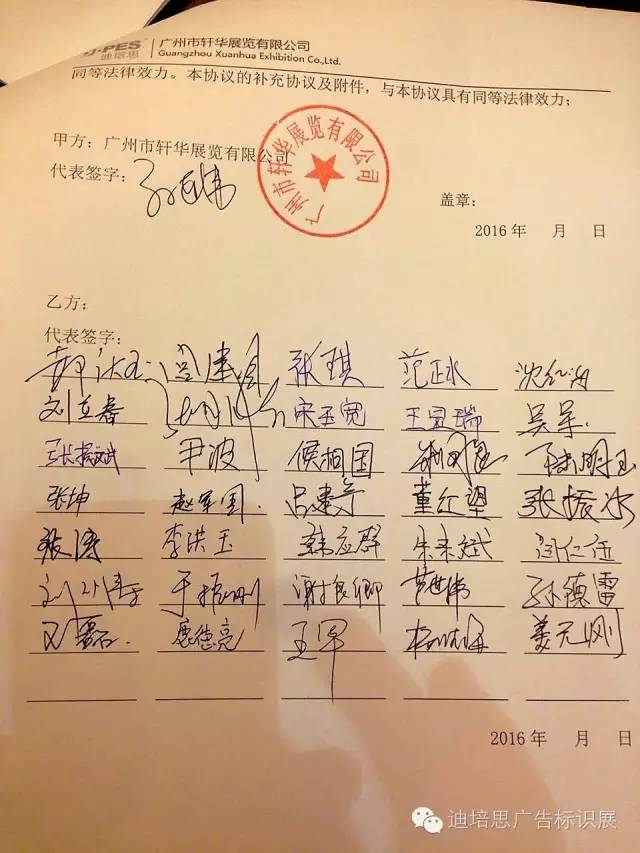 PES 广州市轩华展览有限公司
迪培思 Guangzhou Xuanhua Exhibition Co.,Ltd.
同等法律效力。本协议的补充协议及附件，与本协议具有同等法律效力；
甲方：广州市轩华展览有限公司
代表签字：
广州市轩华展览有限公司
盖章：
2016 年 月 日
乙方：
代表签字：
张琪 范正冰
刘立春 宋玉宽 王显瑞 吴军
张振斌 尹波 侯相国
张坤 赵军国 吕建 董红望 张振冰
张涛 李洪玉 韩应群 朱来斌
于振刚 谢良卿 黄世伟 孙德雷
庞德亮 王军 姜元刚
2016 年 月 日
迪培思广告标识展